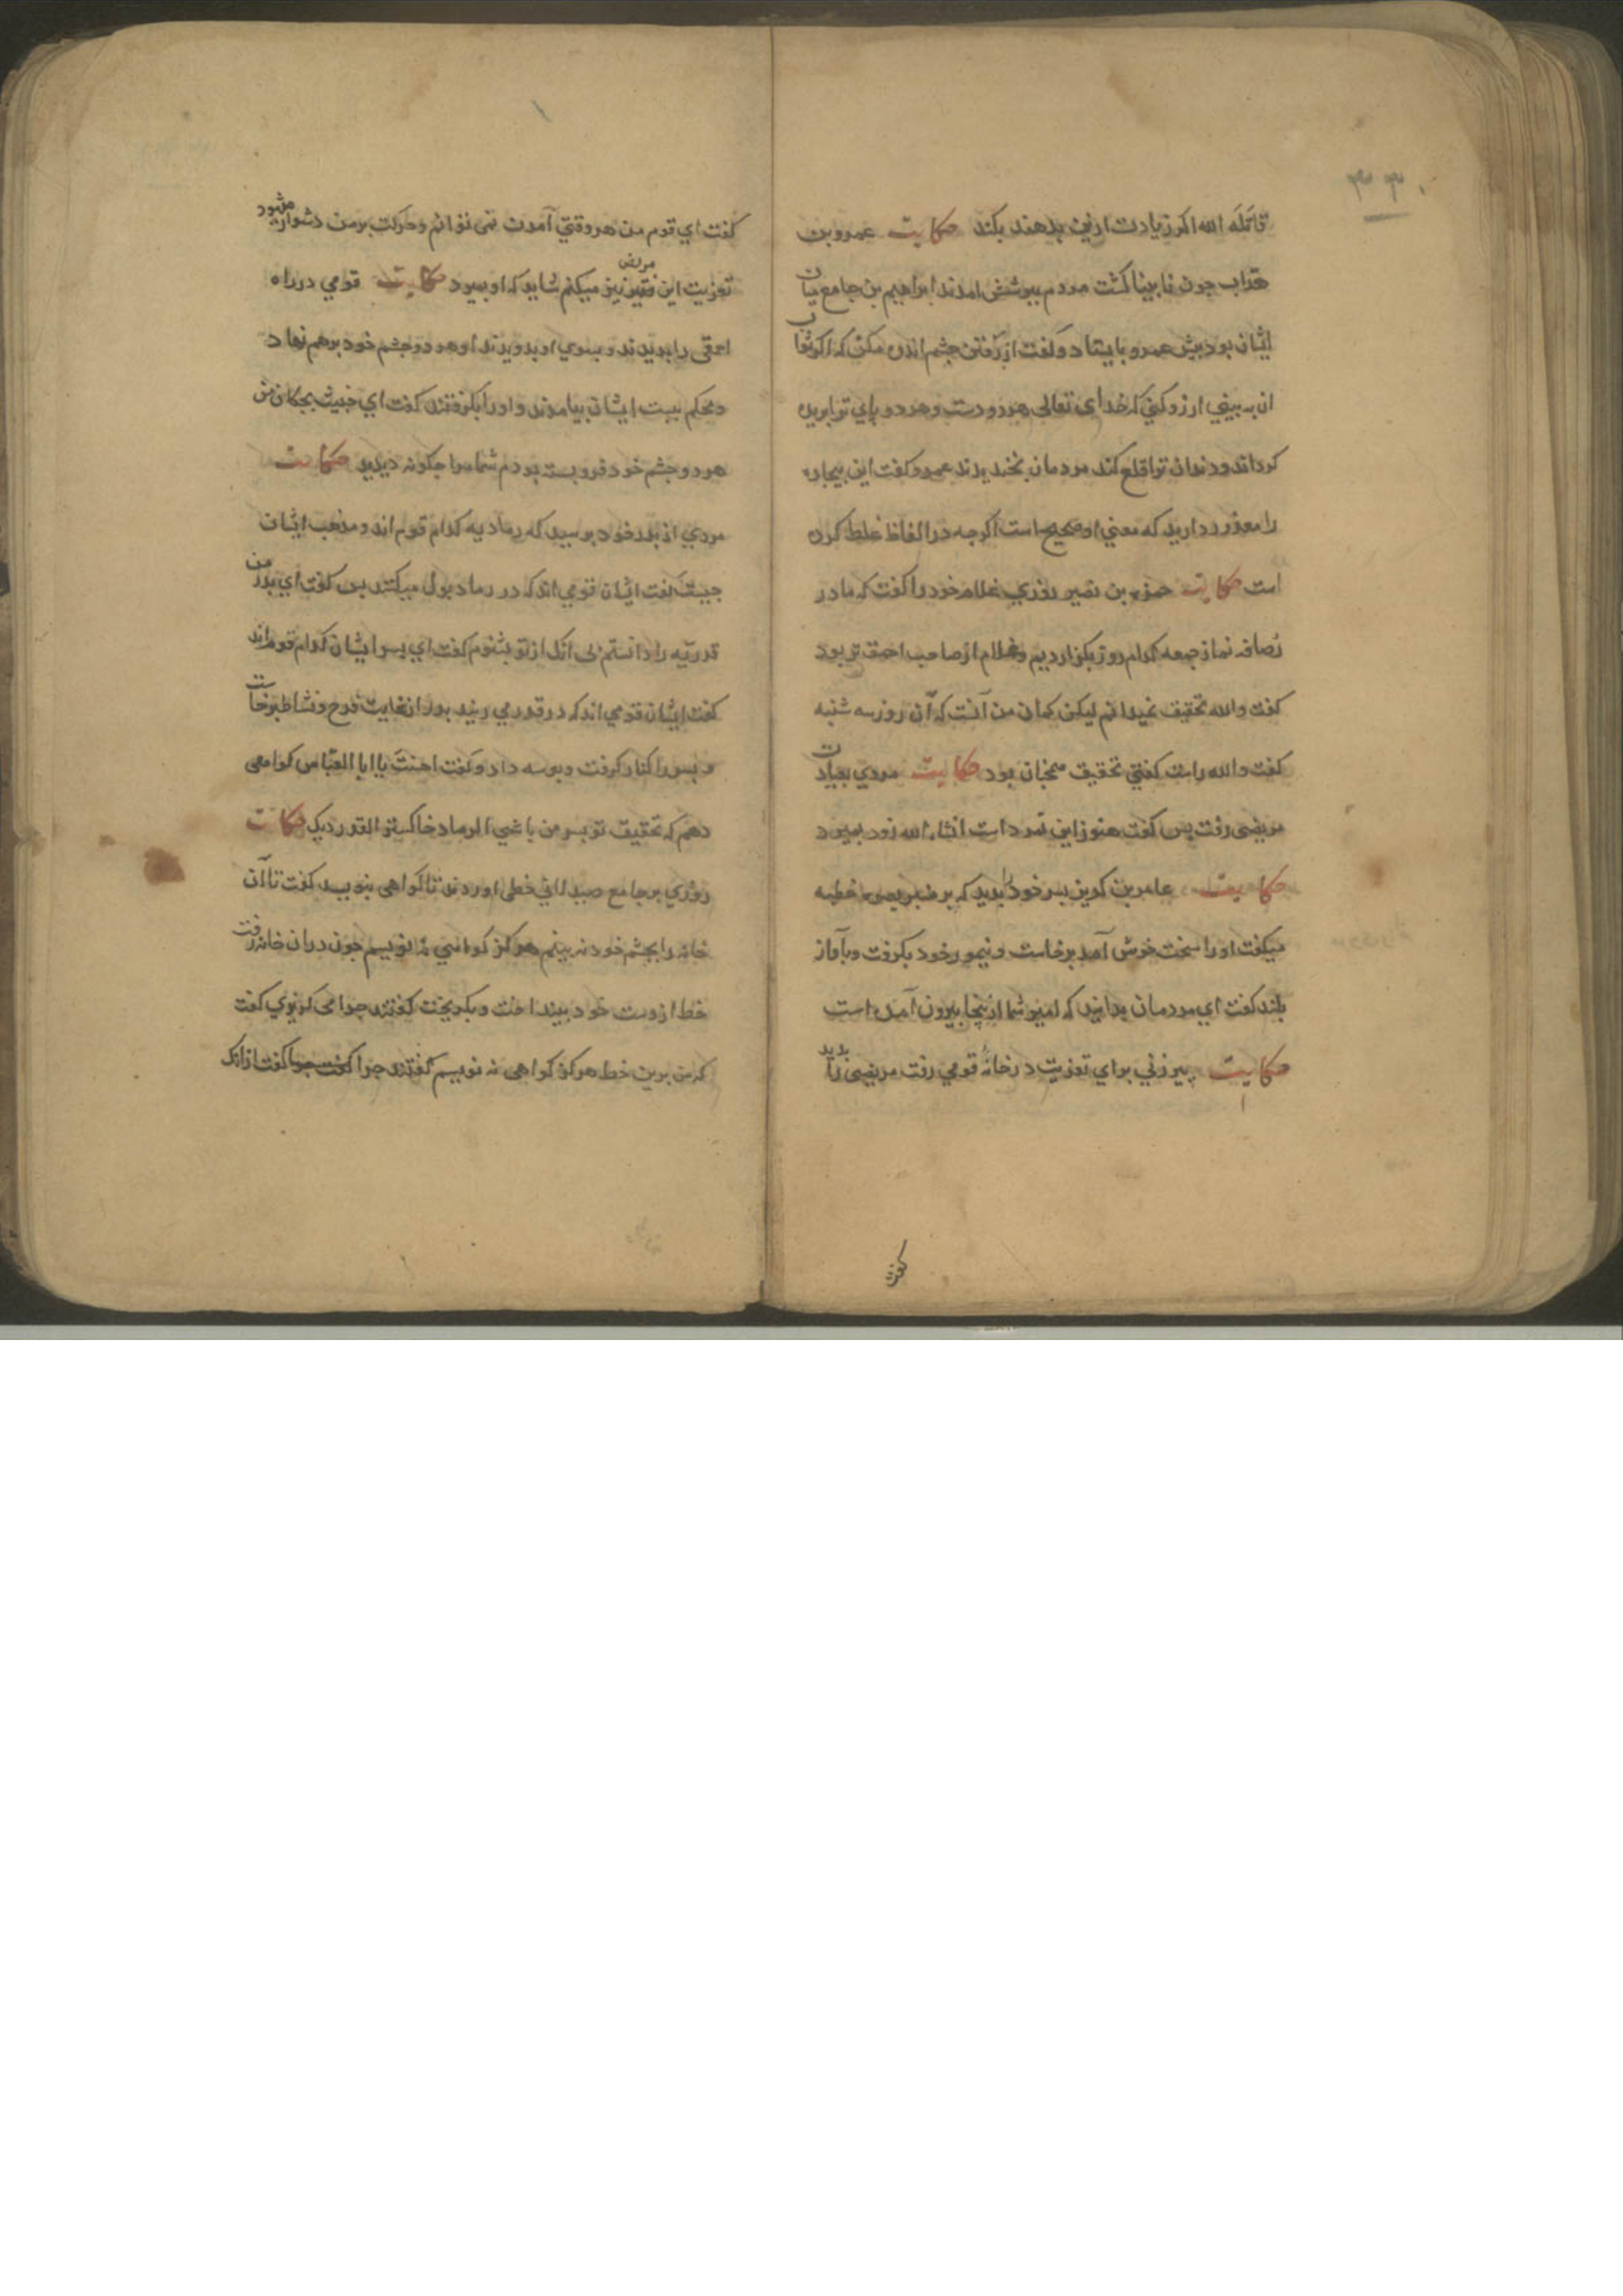 ۳۳۰
قاتله الله اکر زیادت ازین بدهند بکند حکایت عمرو بن
هداب جون نابینا کشت مردم ببرسش امدند ابراهیم بن جامع میان
ایشان بود بیش عمرو بایستاد و کفت از رفتن جشم اندوه مکن که اکر ثواب
ان به بینی ارزو کنی که خدای تعالی هر دو دست و هر دو بای تو ابریده
کرداند و دندان تو اقلع کند مردمان بخندیدند عمرو کفت این بیجاره
را معذور دارید که معنی او صحیح است اکرجه در الفاظ غلط کرده
است حکایت حمزه بن نصیر روزی غلام خود را کفت که ما در
رصافه نماز جمعه کدام روز بکزاردیم و غلام از صاحب احمق تر بود
کفت والله تحقیق نمیدانم لیکن کمان من آنست که آن روز سه شنبه
کفت والله راست کفتی تحقیق همچنان بود حکایت مردی بعیادت
مریضی رفت بس کفت هنوز این نمرد است انشاء الله زود بمیرد
حکایت عامر بن کریز بسر خود را بدید که بر منبر بصره خطبه
میکفت او را سخت خوش آمد برخاست و نیمور خود بکرفت و بآواز
بلند کفت ای مردمان بدانید که امیر شما ازینجا بیرون آمده است
حکایت بیرزنی برای تعزیت در خانه قومی رفت مریضی را بدید
کفت
کفت ای قوم من هر وقتی آمدن نمی توانم و حرکت بر من دشوار میشود
تعزیت این مریض فقیر نیز میکنم شاید که او بمیرد حکایت قومی در راه
احمقی را بدیدند و بسوی او بدویدند او هر دو جشم خود بر هم نهاد
و محکم ببست ایشان بیامدند و او را بکرفتند کفت ای خبیث بجکان من
هر دو جشم خود فرو بسته بودم شما مرا جکونه دیدید حکایت
مردی از بدر خود برسید که رمادیه کدام قوم اند و مذهب ایشان
جیست کفت ایشان قومی اند که در رماد بول میکنند بس کفت ای بدر من
قدریه را دانستم بی آنک از تو بشنوم کفت ای بسر ایشان کدام قوم اند
کفت ایشان قومی اند که در قدر می ریند بدر از غایت فرح و نشاط برخاست
و بسر را کنار کرفت و بوسه داد و کفت احسنت یا ابا العباس کواهی
دهم که تحقیق تو بسر من باشی الرماد خاکستر القدر دیک حکایت
روزی بر جامع صیدلانی خطی اوردند تا کواهی بنویسد کفت تا آن
خانه را بجشم خود نه بینم هرکز کواهی نه نویسم جون در ان خانه رفت
خط از دست خود بینداخت و بکریخت کفتند جرا می کریزی کفت
که من برین خط هرکز کواهی نه نویسم کفتند جرا کفت جرا کفت از انک